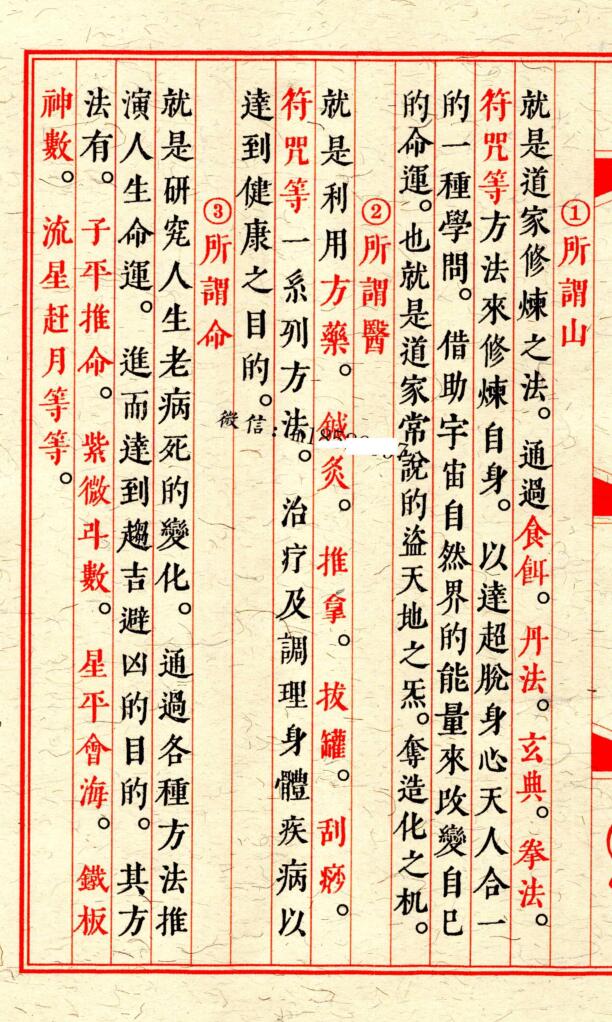 ①所謂山
就是道家修煉之法。通過食餌。丹法。玄典。拳法。
符咒等方法來修煉自身。以達超脫身心天人合一
的一種學問。借助宇宙自然界的能量來改變自已
的命運。也就是道家常說的盜天地之炁。奪造化之机。
②所謂醫
就是利用方藥。鍼灸。推拿。拔罐。刮痧。
符咒等一系列方法。治疗及調理身體疾病以
達到健康之目的。
③所謂命
就是研究人生老病死的變化。通過各種方法推
演人生命運。進而達到趨吉避凶的目的。其方
法有。子平推命。紫微斗數。星平會海。鐵板
神數。流星赶月等等。
微信: